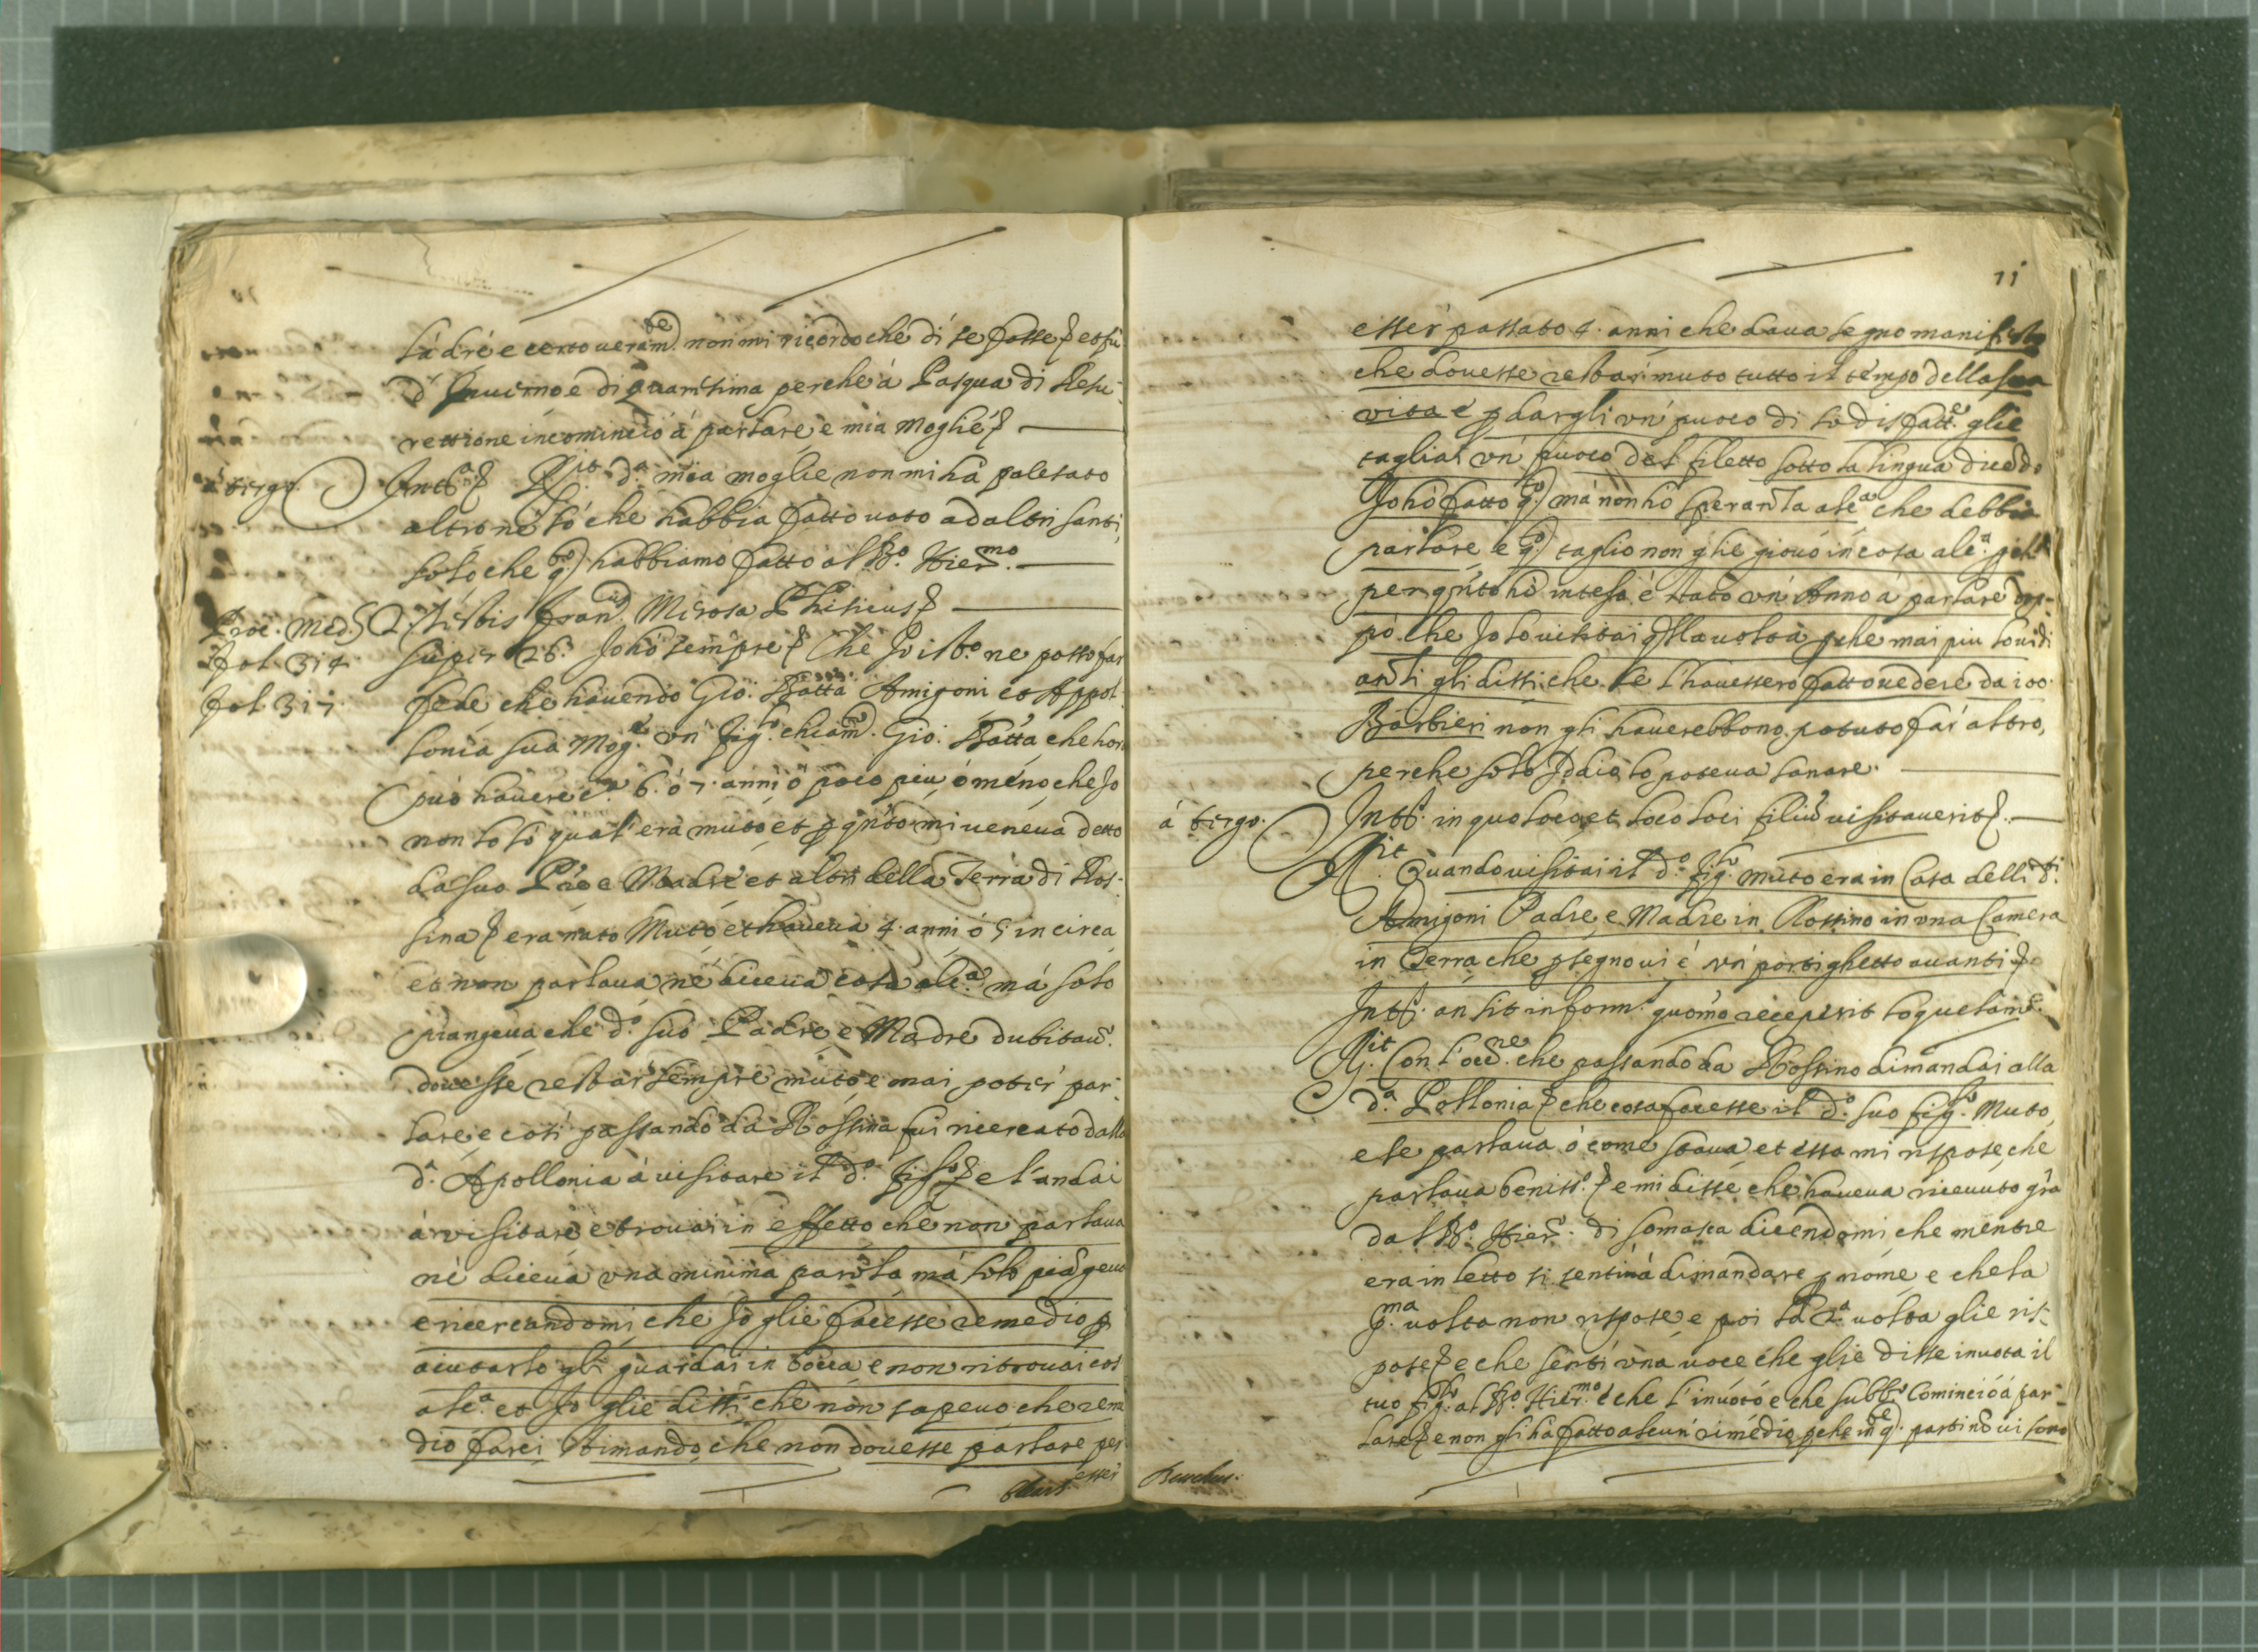 ladre e certo veram.te non mi ricordo che dí se fosse et fú
d'Inverno e di quaresima perche à Pasqua di Resu-
rettione incominció á parlare è mia Moglie
à tergo. Int.s R.it d.a mia moglie non mi há palesato
altro né só che habbia fatto voto ad altri santi,
solo che q.to habbiamo fatto al B.o Hier.mo
Proc. Med. 27 testis Fran.cus Mirosa Phisicus
fol. 314. super 26. Io hó sempre Che Io il B.o ne posso far
fol. 317. fede che havendo Gio: Batta Amigoni et Appol-
lonia sua Mog.e un fig.lo chiam.o Gio. Batta che hora
puó havere c.a 6. ó 7. anni ó poco piu, ó meno che Io
non so lo qual' era muto et p q.nto mi veneva detto
da suo P.re e Madre et altri della Terra di Ros-
sina era nato Muto et haveva 4. anni ó 5 in circa
et non parlava né diceva cosa alc.a má solo
piangeva che d.o suo Padre e Madre dubitav.o
dovesse restar sempre muto e mai poter par-
lare e cosí passando da Rossina fui ricercato dalla
d.a Apollonia á visitare il d.o fig.lo e l'andai
á visitare e trovai in effetto che non parlava
né diceva una minima parola má solo piágeva
e ricercandomi che Io glie facesse remedio p
aiutarlo gli guardai in bocca e non ritrovai cos
alc.a et Io glie dissi che non sapevo che reme
dio farci stimando che non dovesse parlare per
esser
11
esser passato 4. anni che dava segno manifesto
che dovesse restar muto tutto il tempo della sua
vita e p dargli un' puoco di sodisfatt.e glie
tagliai un' puoco del filetto sotto la lingua dicédo
Io hó fatto q.to má non hó speranza alc.a che debbia
parlare e q.to taglio non glie giovó in cosa alc.a
per q.nto hó inteso é stato un' Anno á parlare dop-
pó che Io lo visitai q.lla volta p che mai piu lo vidi
anzi gli dissi che se l'havessero fatto vedere da 100.
Barbieri non gli haverebbono potuto far' altro,
perche solo Iddio lo poteva sanare.
á tergo. Int.s in quo loco, et loco loci filiú visitaverit.
R.it Quando visitai il d.o fig.lo muto era in Casa delli d.ti
Amigoni Padre e Madre in Rossino in una Camera
in Terra che p segno vi é un' portighetto avanti
Int.s an sit inform.s quomo receperit loquelam
R.it Con l'occ.ne che passando da Rossino dimandai alla
d.a Pollonia che cosa facesse il d.o suo fig.lo Muto,
e se parlava ó come stava et essa mi rispose che
parlava beniss.o e mi disse che haveva ricevuto gr.a
dal B.o Hier.o di Somasca dicendomi che mentre
era in letto si sentiná dimandare p nome e che la
p.ma volta non rispose e poi la 2.a volta glie ris-
pose e che sentí una voce che glie disse invota il
tuo fig.lo al B.o Hier.mo e che l'invotó e che sub.o Cominció á par-
lare e non gli há fatto alcun' rimedio p che in q.te parti nó vi sono